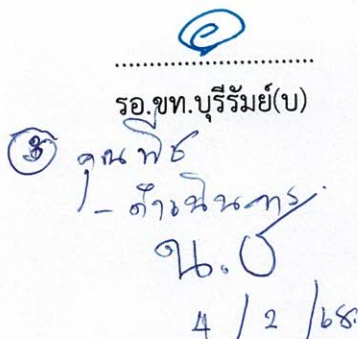 ๑
..............................
รอ.ขท.บุรีรัมย์(บ)
③ คุณพีช
- ดำเนินการ
น.ช
4 / 2 / 68